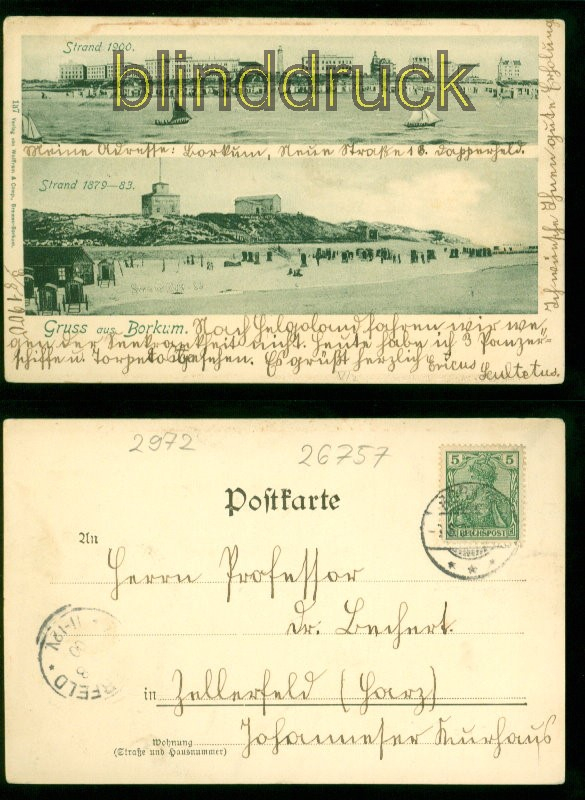 Strand 1900.
blinddruck
Meine Adresse: Borkum, Neue Straße 16. Dapperfeld.
Strand 1879–83.
Gruss aus Borkum. Nach Helgoland fahren wir we-
gen der Seekrankheit nicht. Heute habe ich 3 Panzer-
schiffe u. Torpedo gesehen. Es grüßt herzlich Ericus
Scultetus.
Ich wünsche Ihnen gute Erholung
2972 26757
Postkarte
5 5
REICHSPOST
An
Herrn Professor
Dr. Bechert.
in Zellerfeld (Harz)
Johanneser Kurhaus
Wohnung
(Straße und Hausnummer)
11-12V
RFELD *